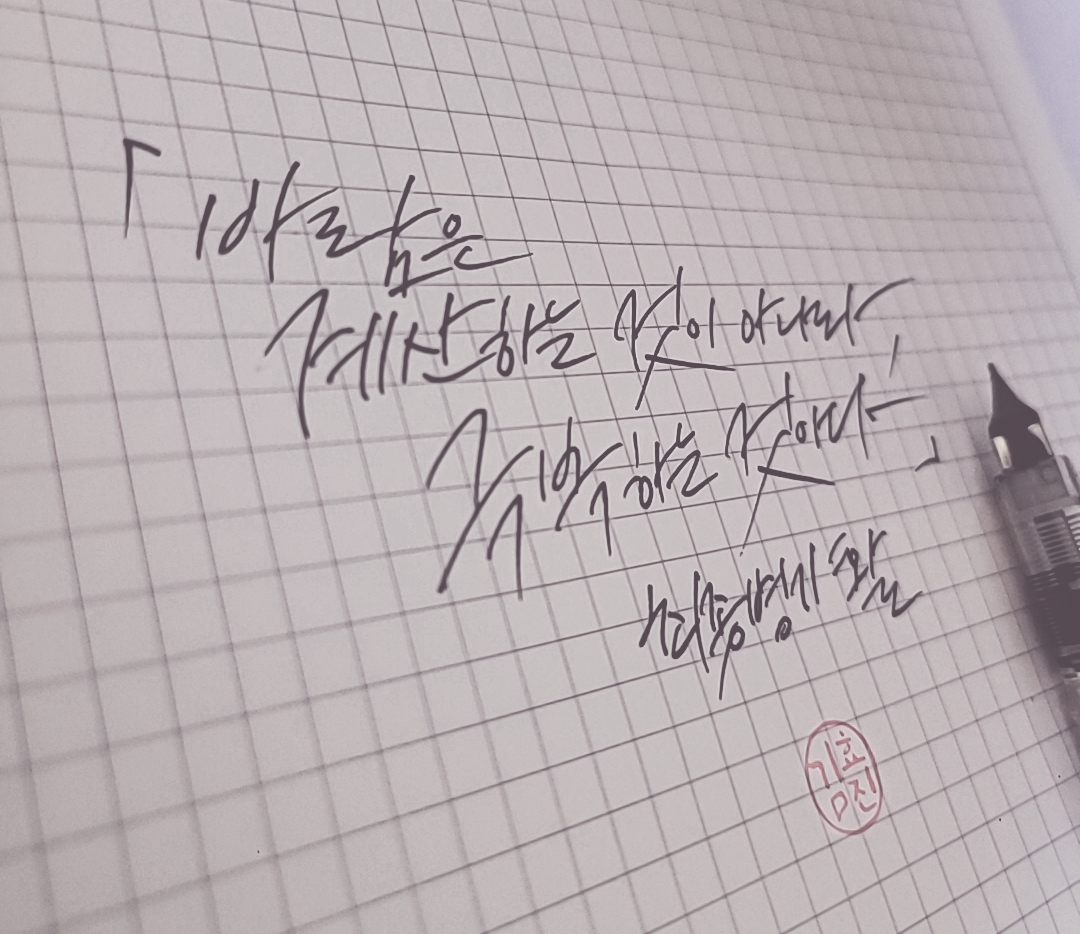 「바람은
계산하는 것이 아니라,
극복하는 것이다」
최종병기 활
김효진